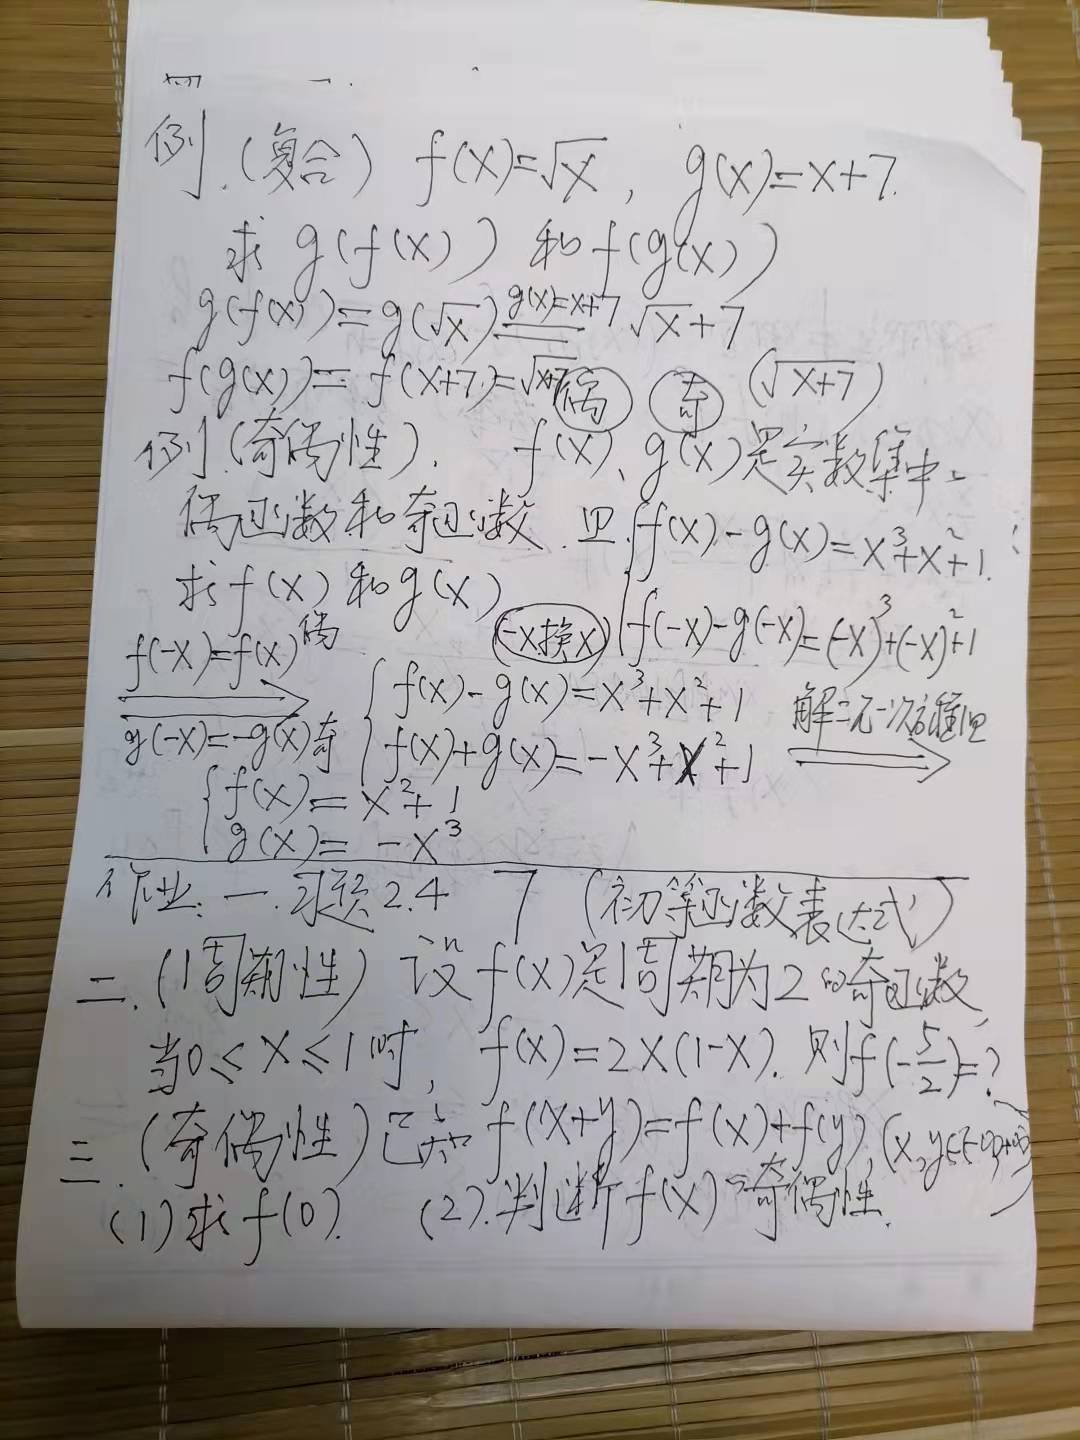 例.(复合) f(x)=√x, g(x)=x+7.
求 g(f(x)) 和 f(g(x))
g(f(x))=g(√x) g(x)=x+7 √x+7
f(g(x))=f(x+7)=√x+7 (√x+7)
偶 奇
例.(奇偶性). f(x)、g(x)是实数集中
偶函数和奇函数.且 f(x)-g(x)=x³+x²+1.
求 f(x) 和 g(x)
-x换x f(-x)-g(-x)=(-x)³+(-x)²+1
f(-x)=f(x) 偶
g(-x)=-g(x) 奇
f(x)-g(x)=x³+x²+1
f(x)+g(x)=-x³+x²+1
解二元一次方程组
f(x)=x²+1
g(x)=-x³
作业:一.习题2.4 7 (初等函数表达式)
二.(周期性) 设f(x)是周期为2的奇函数,
当0≤x≤1时, f(x)=2x(1-x). 则f(-5/2)=?
三.(奇偶性)已知f(x+y)=f(x)+f(y), (x,y∈(-∞,+∞))
(1)求f(0). (2).判断f(x)的奇偶性.